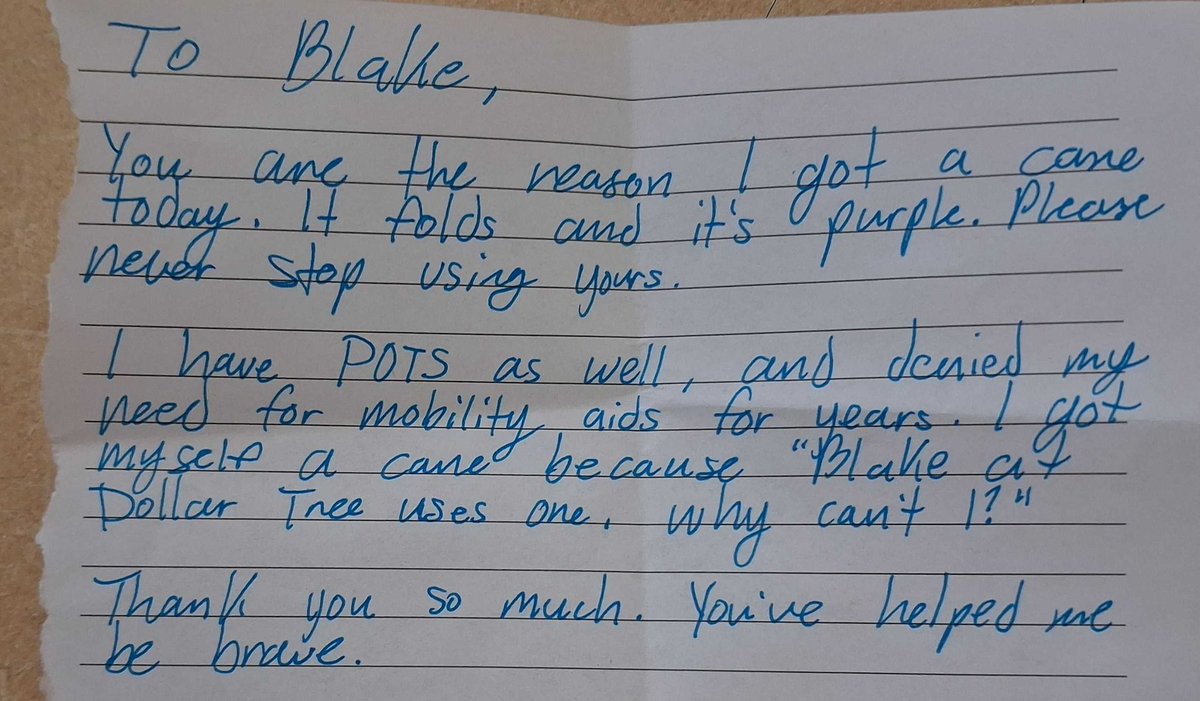 To Blake,
You are the reason I got a cane
today. It folds and it's purple. Please
never stop using yours.
I have POTS as well, and denied my
need for mobility aids for years. I got
myself a cane because "Blake at
Dollar Tree uses one, why can't I?"
Thank you so much. You've helped me
be brave.